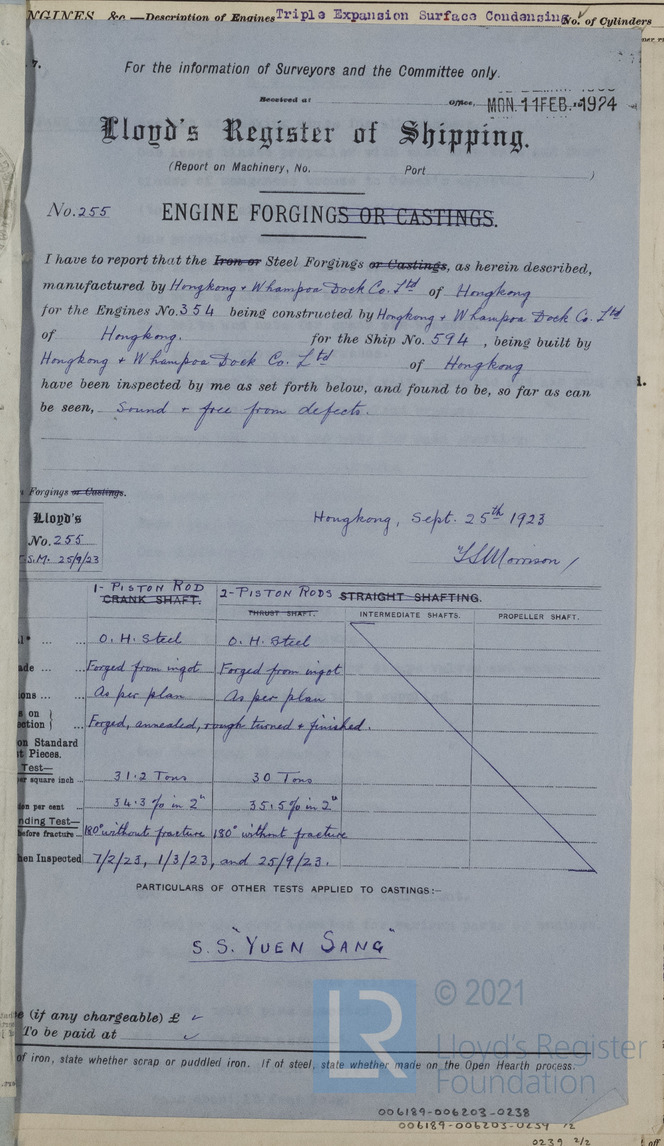 NGINES &c.—Description of Engines Triple Expansion Surface Condensing No. of Cylinders
7.
For the information of Surveyors and the Committee only.
Received at Office, MON. 11 FEB. 1924
Lloyd's Register of Shipping.
(Report on Machinery, No. Port )
No. 255 ENGINE FORGINGS OR CASTINGS.
I have to report that the Iron or Steel Forgings or Castings, as herein described,
manufactured by Hongkong & Whampoa Dock Co. Ltd of Hongkong
for the Engines No. 354 being constructed by Hongkong & Whampoa Dock Co. Ltd
of Hongkong. for the Ship No. 594, being built by
Hongkong & Whampoa Dock Co. Ltd of Hongkong
have been inspected by me as set forth below, and found to be, so far as can
be seen, Sound & free from defects.
Forgings or Castings.
Lloyd's
No. 255
S.M. 25/9/23
Hongkong, Sept. 25th 1923
Morrison
1- PISTON ROD 2- PISTON RODS
CRANK SHAFT. STRAIGHT SHAFTING.
THRUST SHAFT. INTERMEDIATE SHAFTS. PROPELLER SHAFT.
O. H. Steel O. H. Steel
ade Forged from ingot Forged from ingot
ons As per plan As per plan
s on
ection Forged, annealed, rough turned & finished.
on Standard
t Pieces.
Test—
er square inch 31.2 Tons 30 Tons
on per cent 34.3 % in 2" 35.5 % in 2"
nding Test—
before fracture 180° without fracture 180° without fracture
hen Inspected 7/2/23, 1/3/23, and 25/9/23.
PARTICULARS OF OTHER TESTS APPLIED TO CASTINGS:—
S.S. "YUEN SANG"
e (if any chargeable) £
To be paid at
of iron, state whether scrap or puddled iron. If of steel, state whether made on the Open Hearth process.
LR
© 2021
Lloyd's Register
Foundation
006189-006203-0238
006189-006203-0239 1/2
0239 2/2